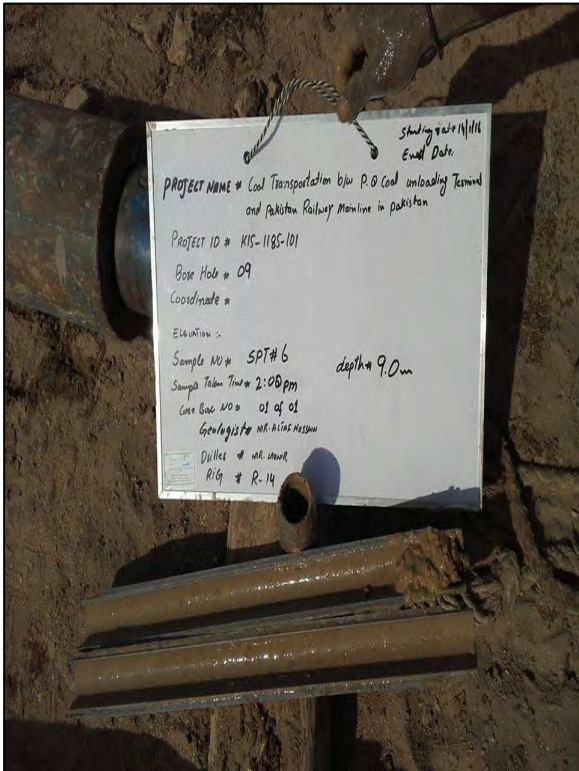 Starting date 14/1/16
End Date.
PROJECT NAME # Coal Transportation b/w P.Q Coal unloading Terminal
and Pakistan Railway Mainline in pakistan
PROJECT ID # K15-1185-101
Bore Hole # 09
Coordinate #
ELEVATION :-
Sample NO # SPT#6
depth # 9.0m
Sample Taken Time # 2:00 pm
Core Box NO # 01 of 01
Geologist # MR. ALTAF HUSSAIN
Driller # MR.
RIG # R-14